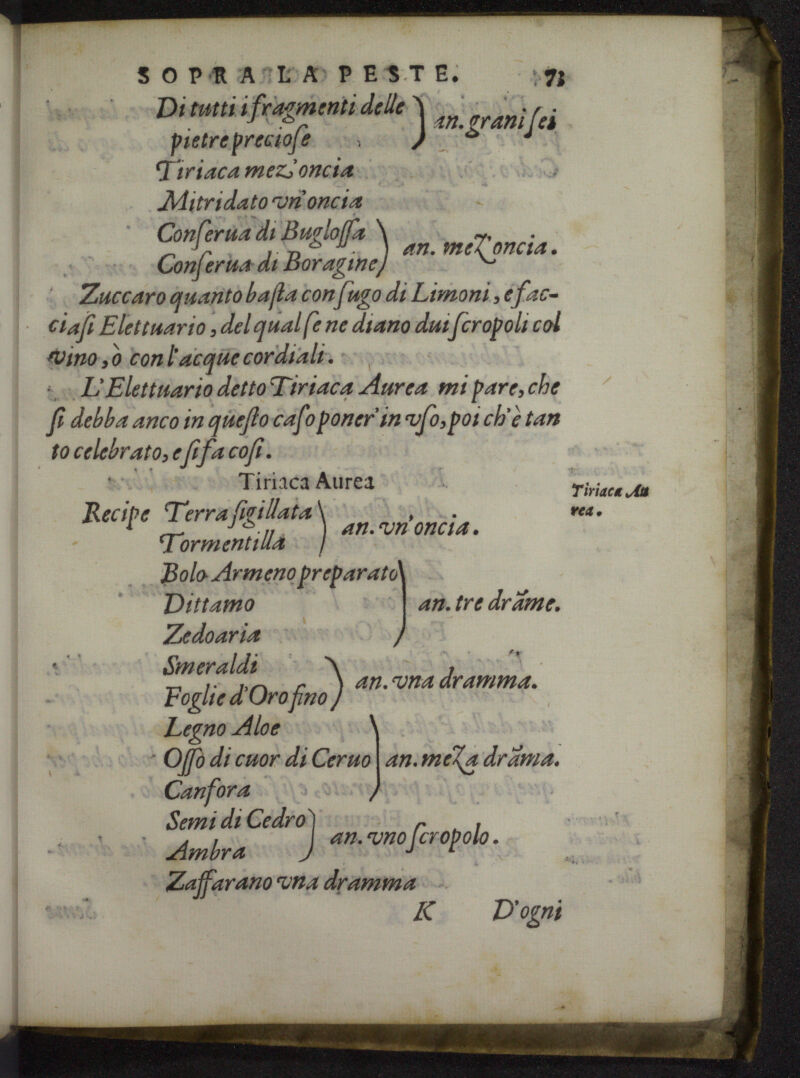 SOPRA LA PESTE. 73
Di tutti i fragmenti delle
pietre preciose } an. grani sei
Tiriaca mez'oncia
Mitridato vn'oncia
Conserua di Buglossa
Conserua di Boragine } an. mez'oncia.
Zuccaro quanto basta con sugo di Limoni, e fac-
ciasi Elettuario, del qual se ne diano dui scropoli col
vino, ò con l'acque cordiali.
L'Elettuario detto Tiriaca Aurea mi pare, che
si debba anco in questo caso poner' in vso, poi ch'è tan
to celebrato, e si fa cosi.
Tiriaca Aurea
Tiriaca Au
rea.
Recipe Terra sigillata
Tormentilla } an. vn'oncia.
Bolo Armeno preparato
Dittamo } an. tre drãme.
Zedoaria
Smeraldi
Foglie d'Oro fino } an. vna dramma.
Legno Aloe
Osso di cuor di Ceruo } an. meza drãma.
Canfora
Semi di Cedro
Ambra } an. vno scropolo.
Zaffarano vna dramma
K D'ogni